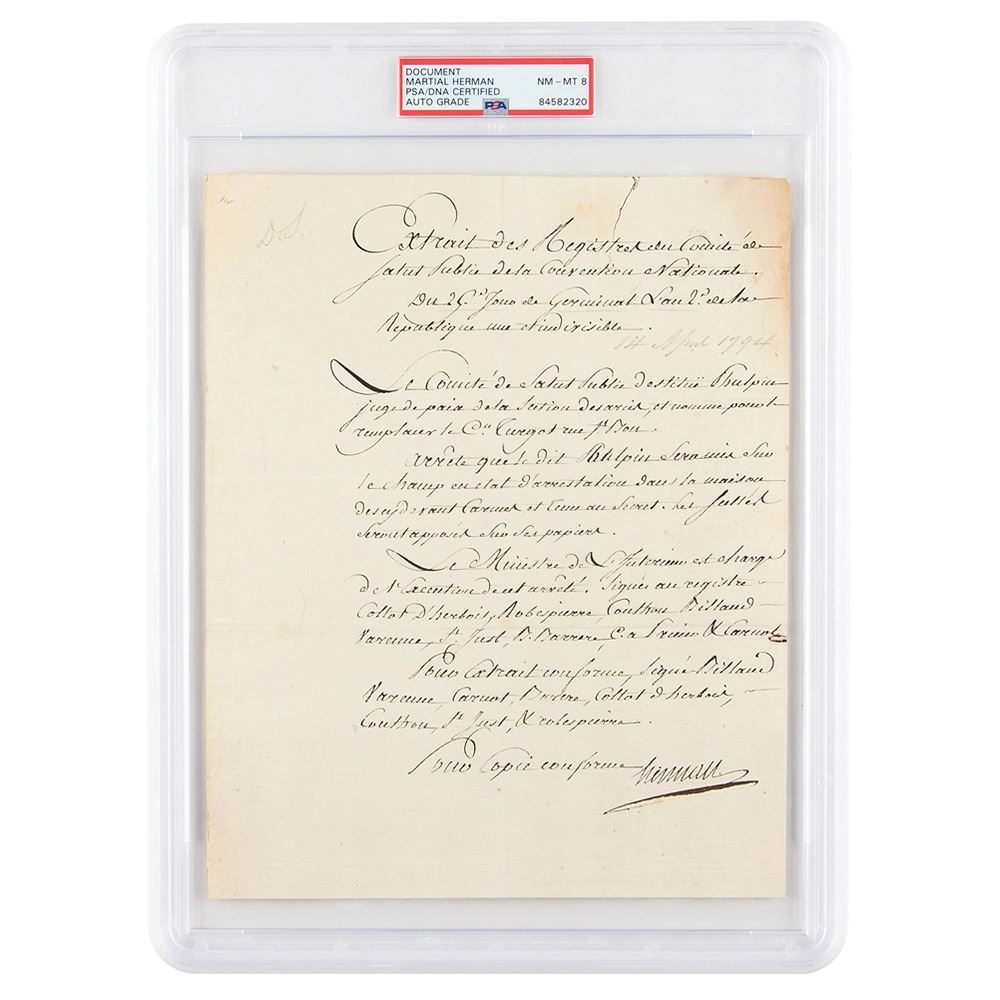 DOCUMENT
MARTIAL HERMAN
PSA/DNA CERTIFIED
AUTO GRADE
PSA
NM – MT 8
84582320
D S.
Extrait des Registres du Comité de
Salut Public de la Convention Nationale.
Du 25.e Jour de Germinal L'an 2.e de la
République une et indivisible.
14 April 1794
Le Comité de Salut Public destitue Phulpin
juge de paix de la Section des arcis, et nomme pour le
remplacer le C.en Turgot rue St Bon.
arrête que le dit Phulpin Sera mis Sur
le champ en etat d'arrestation dans la maison
des cydevant Carmes et tenu au Secret. Les Scellés
Seront apposés Sur Ses papiers.
Le Ministre de L'Interieur est chargé
de l'Execution de cet arrêté. Signés au registre
Collot D'herbois, Robespierre, Couthon, Billaud
Varenne, St. Just, B. Barrere, C. a Prieur & Carnot
Pour extrait conforme, Signé Billaud
Varenne, Carnot, Barère, Collot d'herbois,
Couthon, St. Just, & robespierre.
Pour Copie conforme
herman